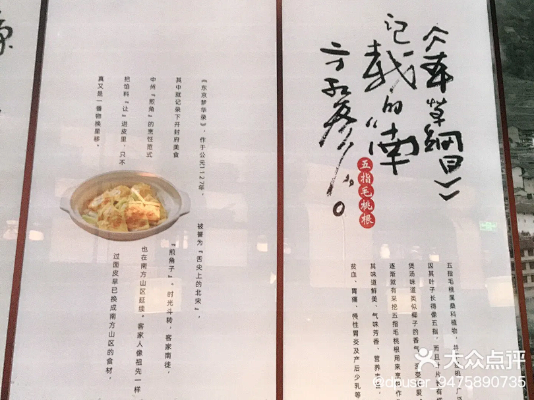 《本草纲目》
记载的“南
方人参”。
五指毛桃根
五指毛桃果桑科植物，
因其叶子长得像五指，而且
煲汤味道类似椰子的香气，
逐渐就有采挖五指毛桃根用来
其味道鲜美、气味芳香、营养丰
贫血、胃痛、慢性胃炎及产后少乳等
《东京梦华录》，作于公元1127年，
被誉为“舌尖上的北宋”，
其中就记录下开封府美食
“煎角子”。时光斗转，客家南徙，
中州“煎角”的烹性范式
也在南方山区延续。客家人像祖先一样
把馅料“让”进皮里，只不
过面皮早已换成南方山区的食材，
真又是一番物换星移。
大众点评
@dpuser_9475890735